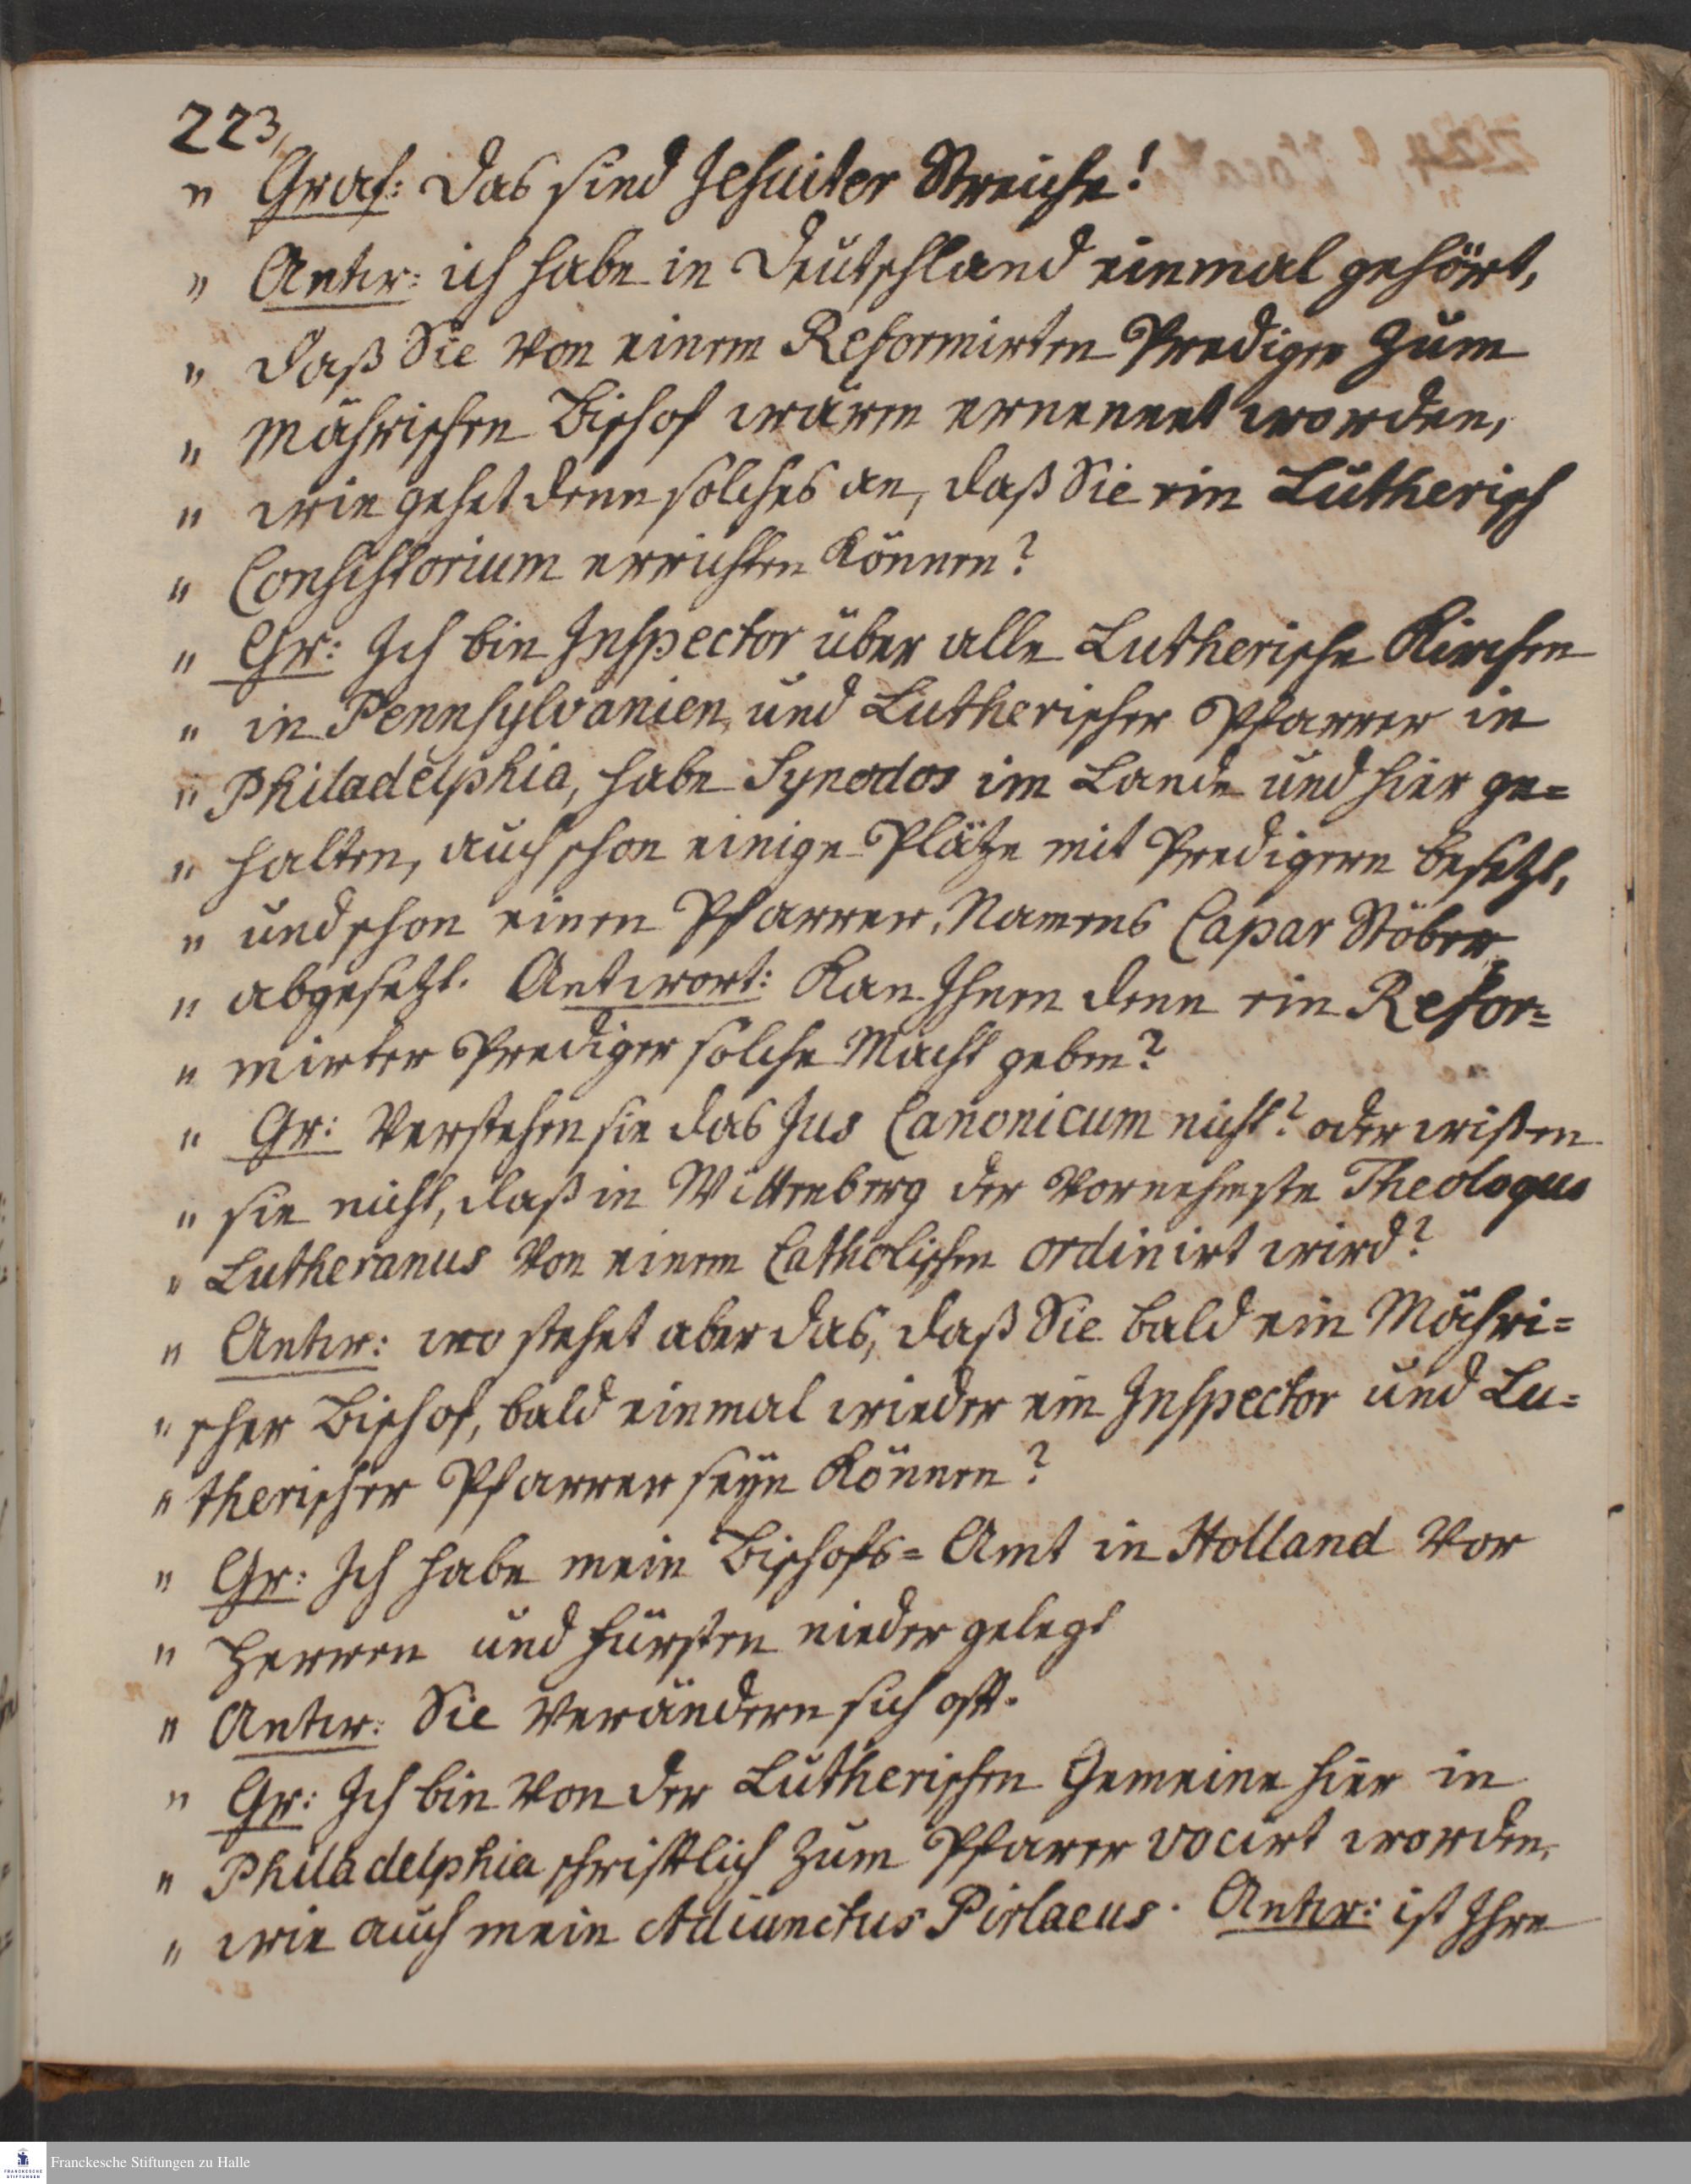 223,
" Graf: Das sind Jesuiter Streiche!
" Antw: ich habe in Deutschland einmal gehört,
" daß Sie von einem Reformirten Prediger zum
" Mährischen Bischof wären ernennet worden,
" wie gehet denn solches an, daß Sie ein Lutherisch
" Consistorium errichten können?
" Gr: Ich bin Inspector über alle Lutherische Kirchen
" in Pennsylvanien, und Lutherischer Pfarrer in
" Philadelphia, habe Synodos im Lande und hier ge=
" halten, auch schon einige Plätze mit Predigern besetzt,
" und schon einen Pfarrer, Namens Capar Stöber
" abgesetzt. Antwort: Kan Ihnen denn ein Refor=
" mirter Prediger solche Macht geben?
" Gr: Verstehen sie das Jus Canonicum nicht? oder wißen
" sie nicht, daß in Wittenberg der vornehmste Theologus
" Lutheranus von einem Catholischen ordinirt wird?
" Antw: wo stehet aber das, daß Sie bald ein Mähri=
" scher Bischof, bald einmal wieder ein Inspector und Lu=
" therischer Pfarrer seÿn können?
" Gr: Ich habe mein Bischofs=Amt in Holland vor
" Herren und Fürsten nieder gelegt
" Antw: Sie verändern sich oft.
" Gr: Ich bin von der Lutherischen Gemeine hier in
" Philadelphia schriftlich zum Pfarer vocirt worden,
" wie auch mein Adiunctus Pirlaeus. Antw: ist Ihre
Franckesche Stiftungen zu Halle